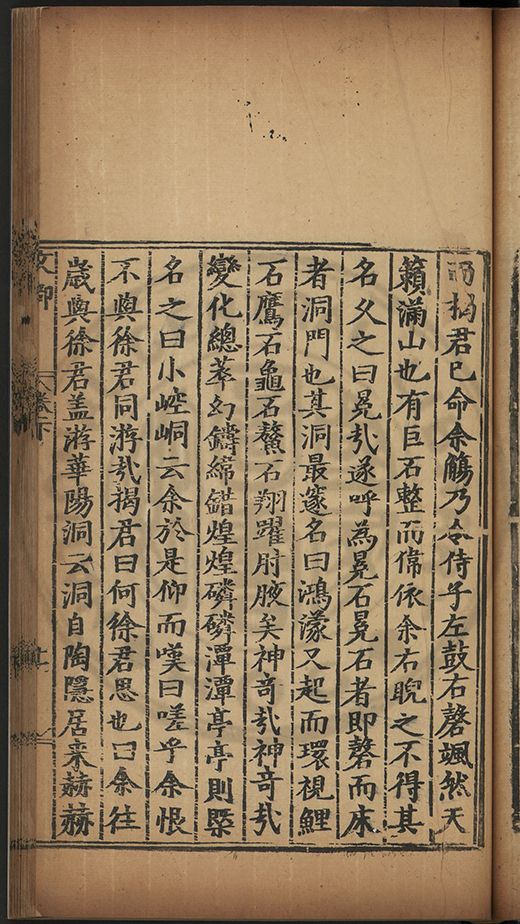 而揭君已命余觴乃令侍子左鼓右磬颯然天
籟滿山也有巨石整而偉依余右睨之不得其
名久之曰晃㢤遂呼為晃石晃石者即磬而床
者洞門也其洞最邃名曰鴻濛又起而環視鯉
石鷹石龜石鰲石翔躍肘腋矣神竒㢤神竒㢤
變化總萃幻鑄綿錯煌煌磷磷潭潭亭亭則槩
名之曰小崆峒云余於是仰而嘆曰嗟乎余恨
不與徐君同游㢤揭君曰何徐君思也曰余往
歲與徐君盖游華陽洞云洞自陶隱居来赫赫
卷下